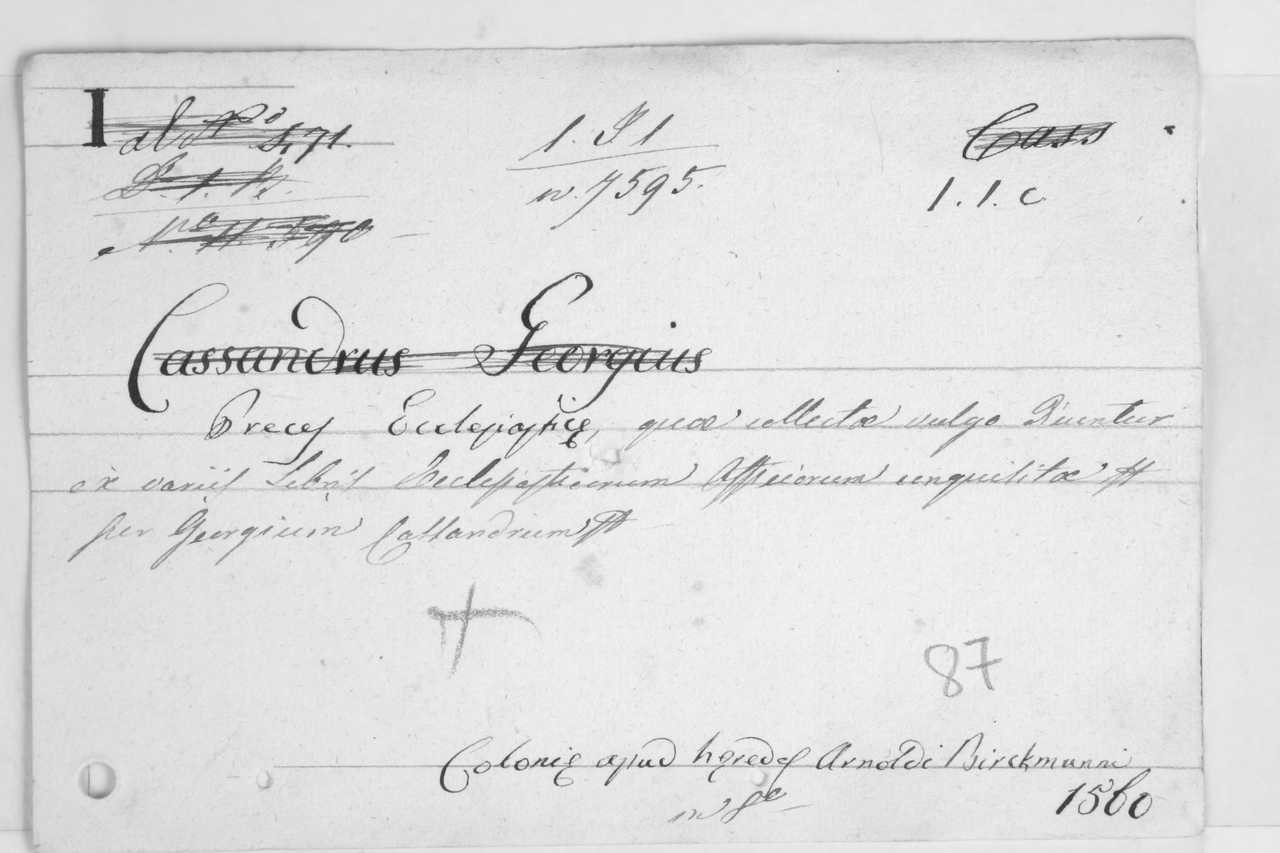 I
ad Nº 471.
1. I 1
Cass
n. 7595.
1. 1. c
Cassandrus Georgius
Preces Ecclesiasticę, quæ collectæ vulgo dicuntur
ex variis Libris Ecclesiasticorum Officiorum conquisitæ
per Georgium Cassandrum
87
Colonię apud hęredes Arnoldi Birckmanni
in 8º
1560